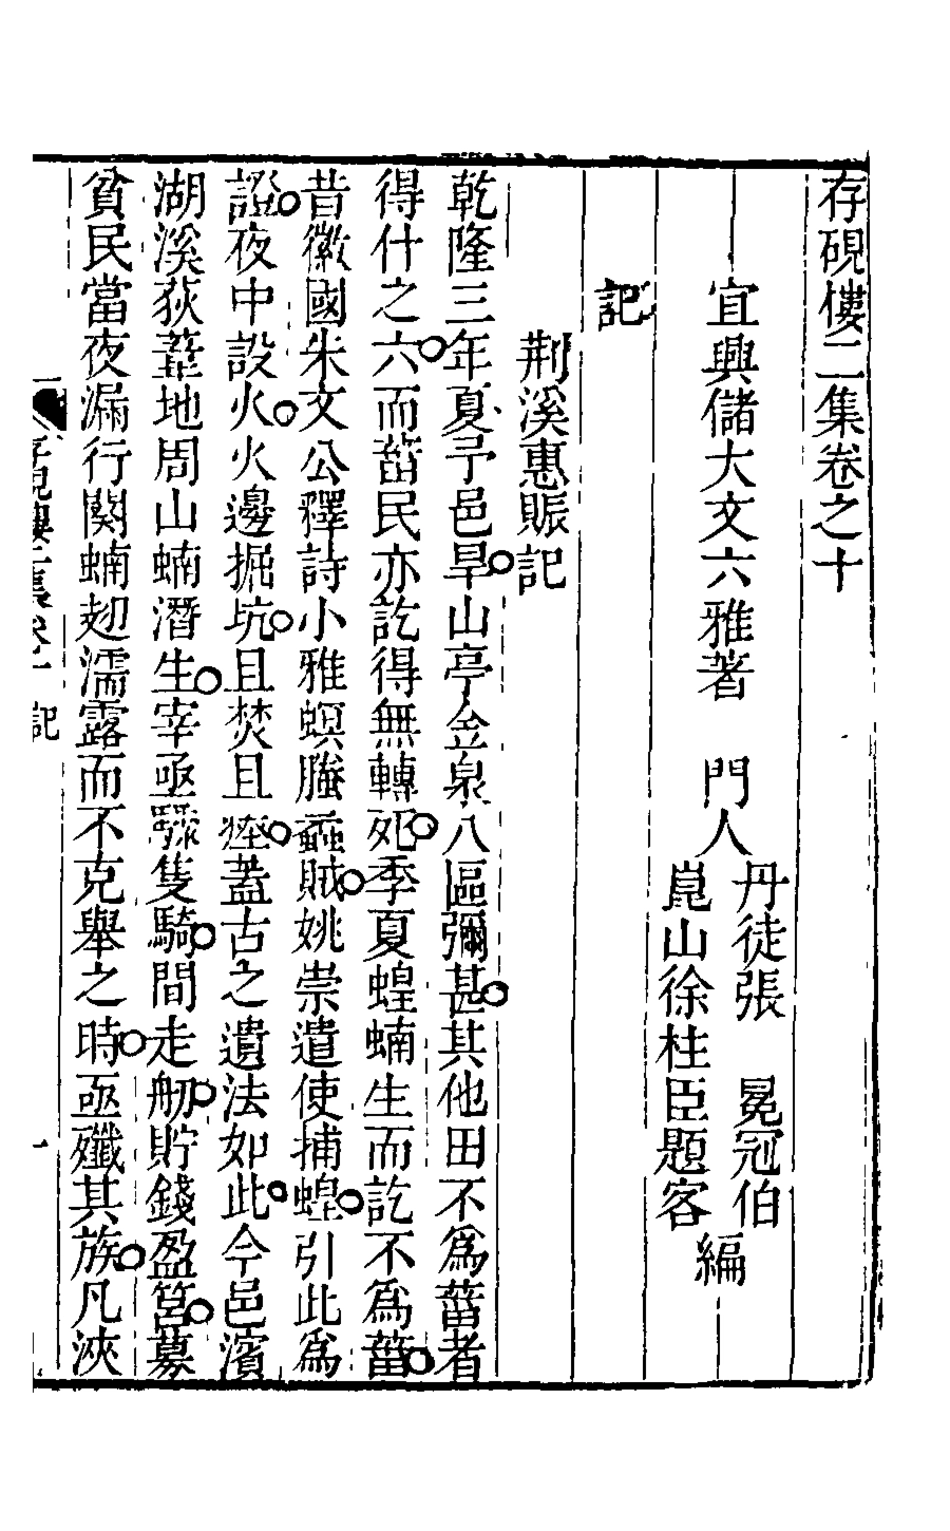 存硯樓二集卷之十
宜興儲大文六雅著　門人
丹徒張　冕冠伯
崑山徐柱臣題客
編
記
荆溪惠賑記
乾隆三年夏予邑旱山亭金泉八區彌甚其他田不爲葘者
得什之六而葘民亦訖得無轉死季夏蝗蝻生而訖不爲葘
昔徽國朱文公釋詩小雅螟螣蟊賊姚崇遣使捕蝗引此爲
證夜中設火火邊掘坑且焚且瘞蓋古之遺法如此今邑濱
湖溪荻葦地周山蝻潛生宰亟騾隻騎間走舠貯錢盈筥募
貧民當夜漏行闋蝻翅濡露而不克舉之時亟殲其族凡浹
存硯樓二集卷十　記　一